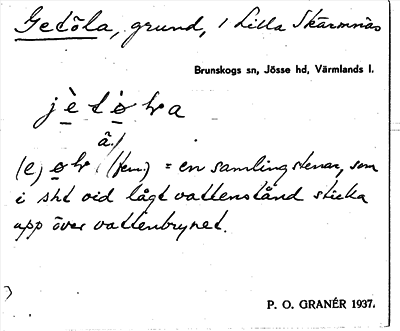 Getöla, grund, i Lilla Skärmnäs
Brunskogs sn, Jösse hd, Värmlands l.
(e) (fem.) = en samling stenar, som
i sht vid lågt vattenstånd sticka
upp över vattenbrynet.
P. O. GRANÉR 1937.